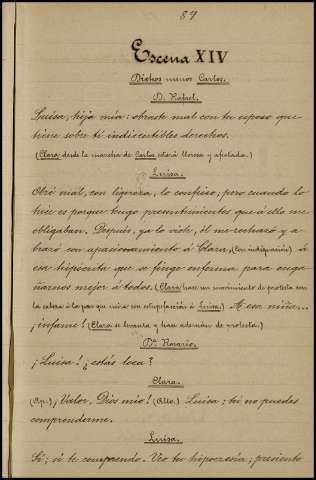 89
Escena XIV
Dichos menos Carlos.
D. Rafael.
Luisa, hija mía: obraste mal con tu esposo que
tiene sobre ti indiscutibles derechos.
(Clara desde la marcha de Carlos estará llorosa y apenada.)
Luisa.
Obré mal, con ligereza, lo confieso; pero cuando lo
hice es porque tengo presentimientos que á ello me
obligaban. Después, ya lo viste, él me rechazó y a-
brazó con apasionamiento á Clara, (Con indignación) á
esa hipócrita que se finge enferma para enga-
ñarnos mejor á todos. (Clara hace un movimiento de protesta con
la cabeza á la par que mira con estupefacción á Luisa.) A esa niña...
¡infame! (Clara se levanta y hace ademán de protesta.)
Dª Rosario.
¡Luisa! ¿estás loca?
Clara.
(Ap.) ¡Valor, Dios mío! (Alto.) Luisa; tú no puedes
comprenderme.
Luisa.
Sí; si te comprendo. Veo tu hipocresía; presiento